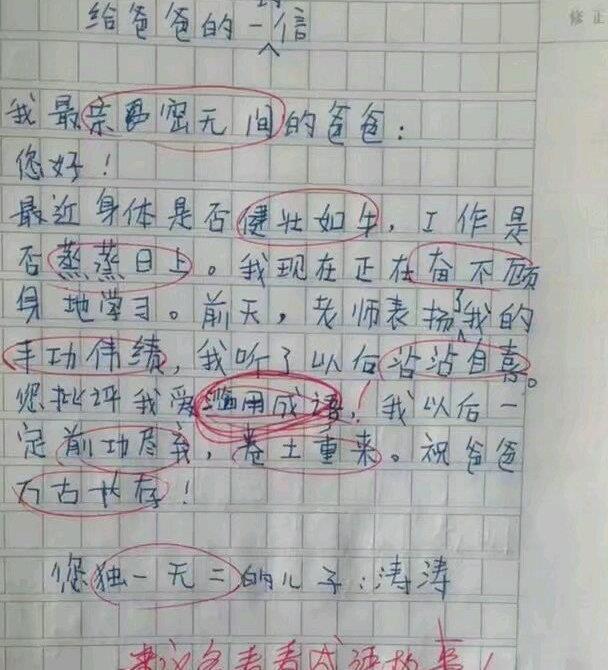 给爸爸的一封信
修正
我最亲密无间的爸爸:
您好!
最近身体是否健壮如牛,工作是
否蒸蒸日上。我现在正在奋不顾
身地学习。前天,老师表扬了我的
丰功伟绩,我听了以后沾沾自喜。
您批评我爱滥用成语,我以后一
定前功尽弃,卷土重来。祝爸爸
万古长存!
您独一无二的儿子:涛涛
建议多看看成语故事!